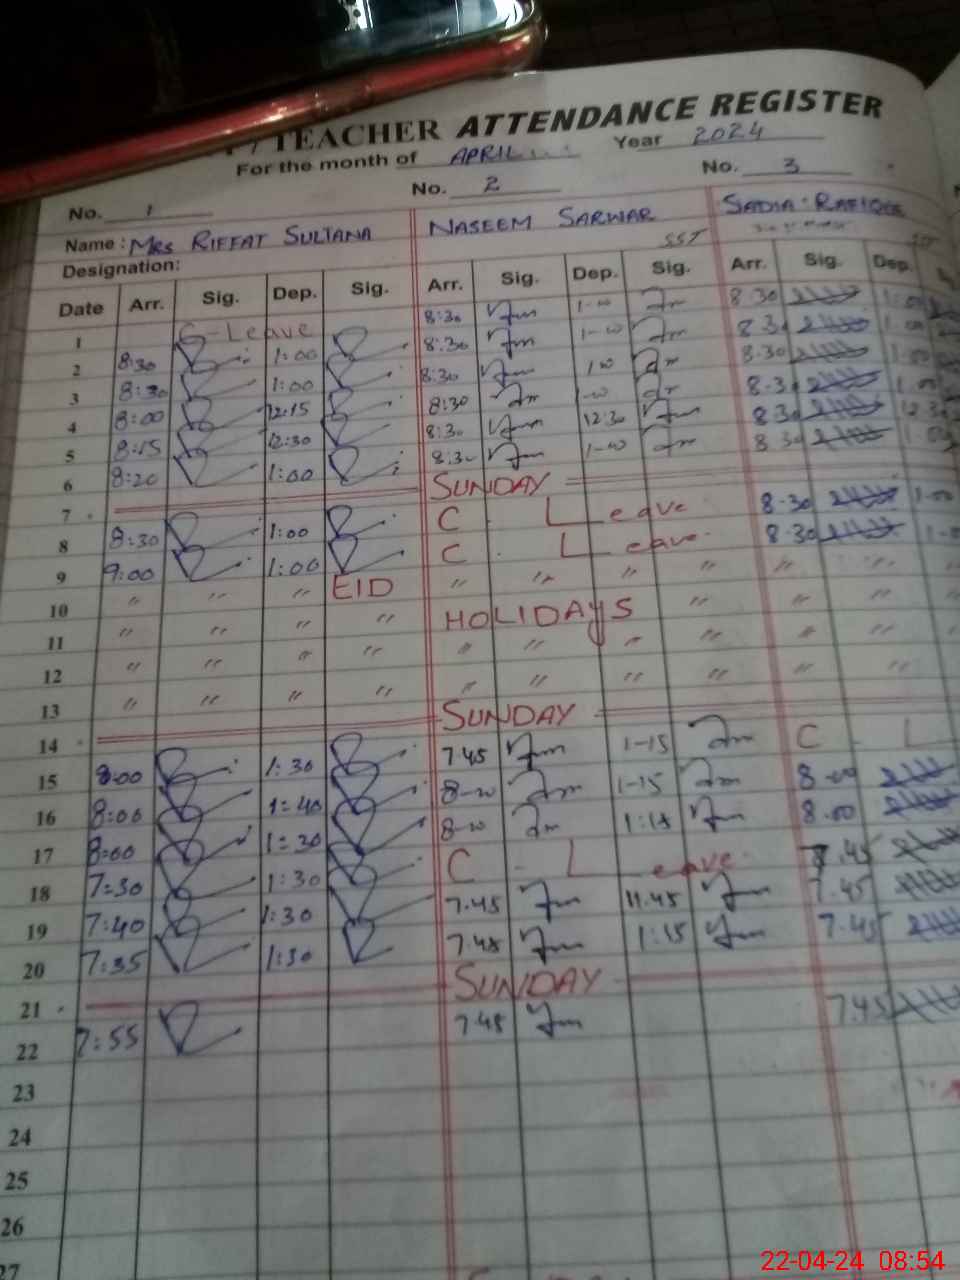 TEACHER ATTENDANCE REGISTER
For the month of APRIL Year 2024
No. 1 No. 2 No. 3
Name: Mrs RIFFAT SULTANA NASEEM SARWAR SADIA RAFIQUE
Designation: SST
Date Arr. Sig. Dep. Sig. Arr. Sig. Dep. Sig. Arr. Sig. Dep.
1 C-Leave 8:30 1-00 8.30 1:00
2 8:30 1:00 8:30 1-00 8.30 1.00
3 8:30 1:00 8:30 1-00 8.30 1.00
4 8:00 12:15 8:30 1-00 8.30 1.00
5 8:15 12:30 8:30 12:30 8.30 12.30
6 8:20 1:00 8:30 1-00 8.30 1.00
7 SUNDAY
8 8:30 1:00 C - Leave 8.30 1.00
9 9:00 1:00 C - Leave 8.30
10 " " " EID " " " " "
11 " " " " HOLIDAYS " " "
12 " " " " " " " " " "
13 " " " " " " " " " "
14 SUNDAY
15 8:00 1:30 7.45 1-15 C - L
16 8:00 1:40 1-15 8.00
17 8:00 1:30 8.00
18 7:30 1:30 C - Leave 7.45
19 7:40 1:30 7.45 11.45 7.45
20 7:35 1:30 7.45 1:15 7.45
21 SUNDAY
22 7:55 7.45 7.45
23
24
25
26
27
22-04-24 08:54